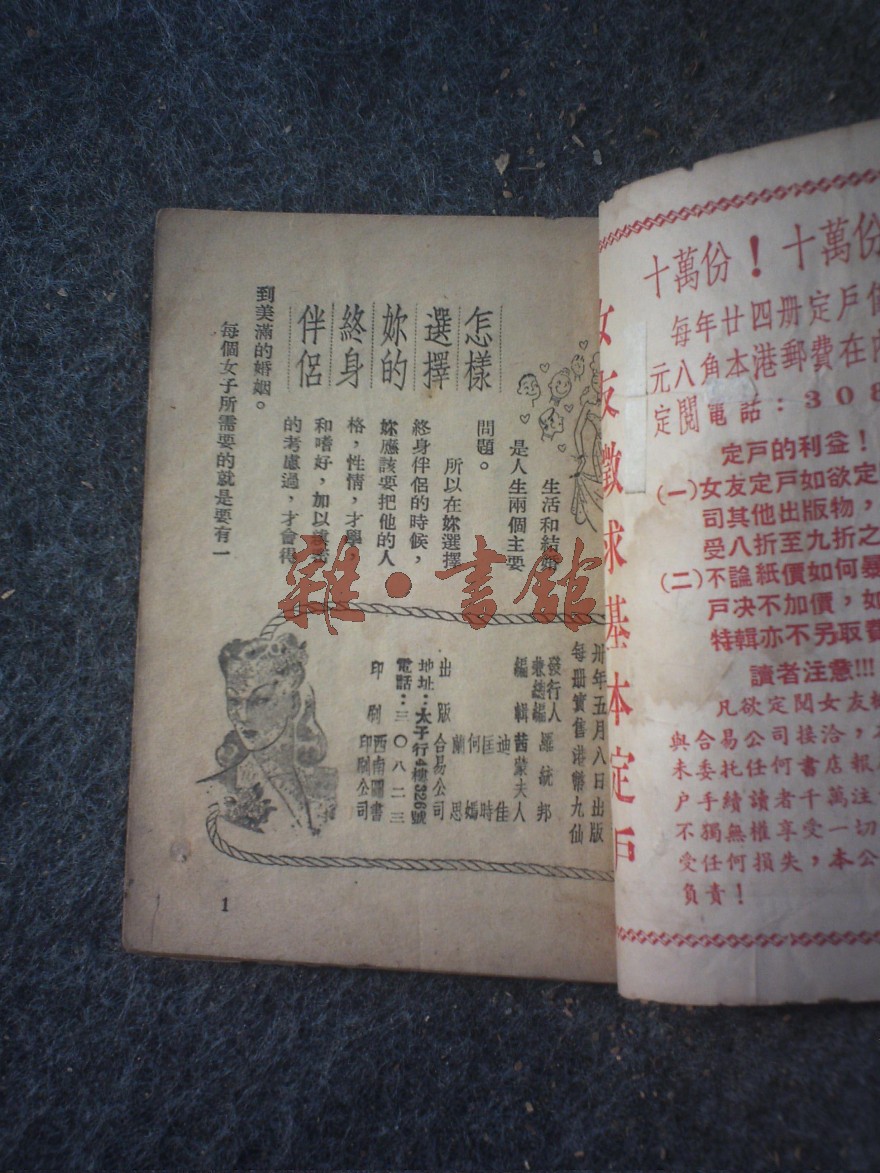 十萬份！十萬份
每年廿四册定戶
元八角本港郵費在
定閱電話：308
定戶的利益！
(一)女友定戶如欲定
司其他出版物，
受八折至九折之
(二)不論紙價如何暴
戶决不加價，如
特輯亦不另取費
讀者注意!!!
凡欲定閱女友
與合易公司接洽，
未委托任何書店報
户手續讀者千萬注
不獨無權享受一切
受任何損失，本公
負責！
女友徵求基本定戶
怎樣
選擇
妳的
終身
伴侶
生活和結婚
是人生兩個主要
問題。
所以在妳選擇
終身伴侶的時候，
妳應該要把他的人
格，性情，才學，
和嗜好，加以
的考慮過，才會得
到美滿的婚姻。
每個女子所需要的就是要有一
卅年五月八日出版
每册實售港幣九仙
發行人兼總編 羅統邦
編輯 茜蒙夫人
迪佳
匡時
何嫣
蘭思
出版 合易公司
地址：太子行4樓326號
電話：三〇八二三
印刷 西南圖書印刷公司
1
雜·書館